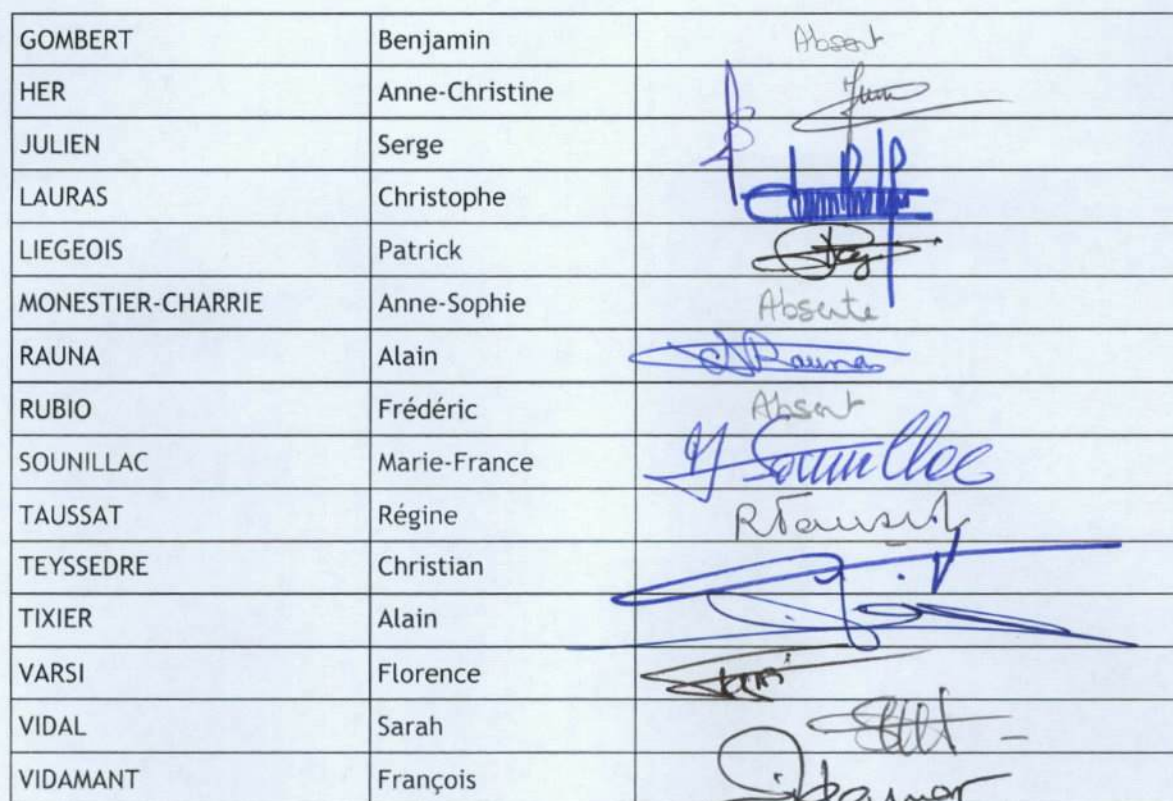 GOMBERT Benjamin Absent
HER Anne-Christine
JULIEN Serge
LAURAS Christophe
LIEGEOIS Patrick
MONESTIER-CHARRIE Anne-Sophie Absente
RAUNA Alain Rauna
RUBIO Frédéric Absent
SOUNILLAC Marie-France
TAUSSAT Régine
TEYSSEDRE Christian
TIXIER Alain
VARSI Florence
VIDAL Sarah
VIDAMANT François